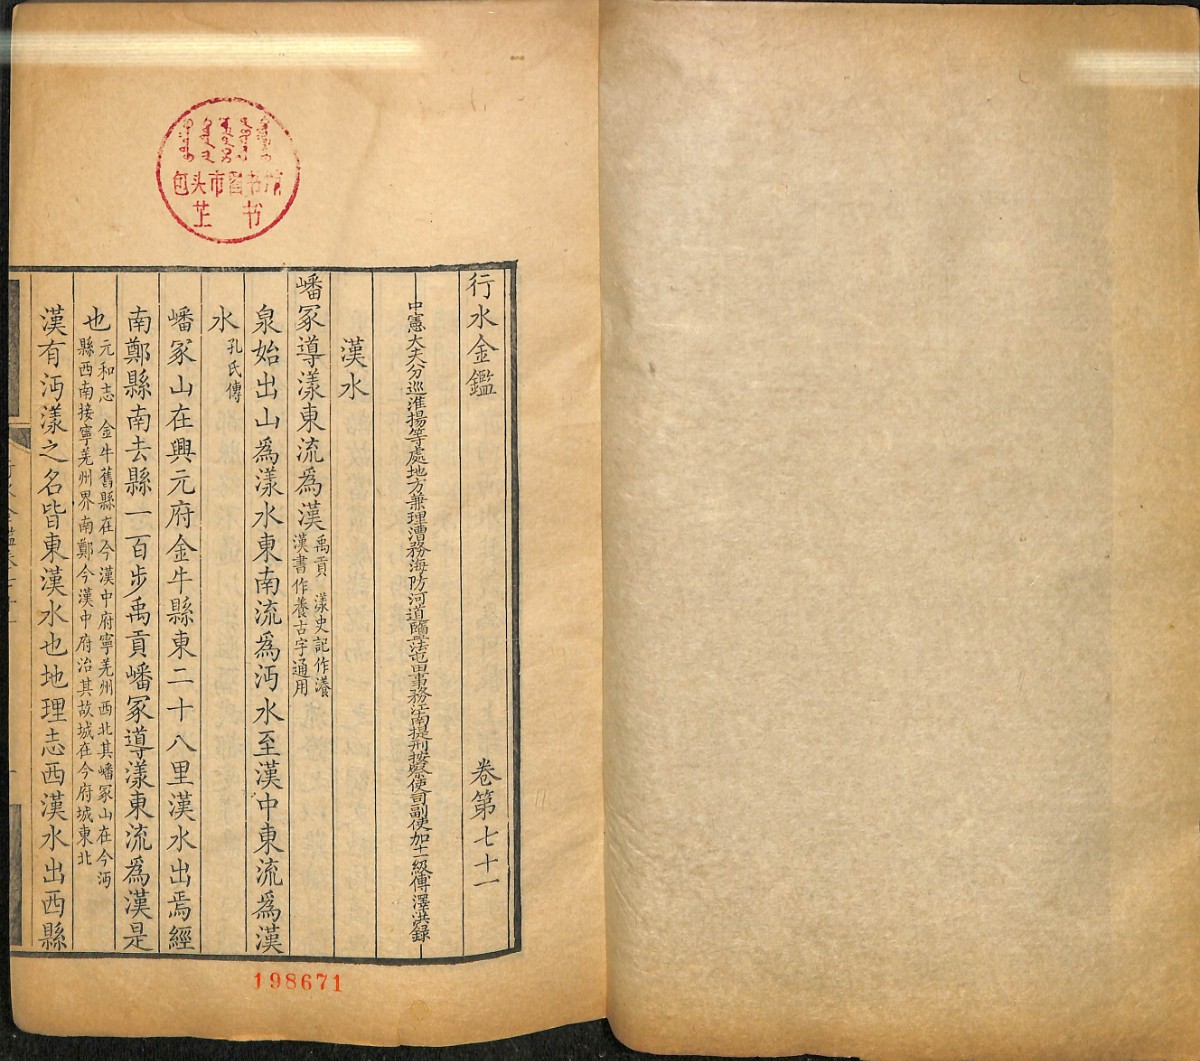 行水金鑑 卷第七十一
中憲大夫分巡淮揚等處地方兼理漕務海防河道鹽法屯田事務江南提刑按察使司副使加二級傅澤洪錄
漢水
嶓冢導漾東流爲漢 禹貢 漾史記作瀁
漢書作養古字通用
泉始出山爲漾水東南流爲沔水至漢中東流爲漢
水 孔氏傳
嶓冢山在興元府金牛縣東二十八里漢水出焉經
南鄭縣南去縣一百步禹貢嶓冢導漾東流爲漢是
也 元和志 金牛舊縣在今漢中府寧羌州西北其嶓冢山在今沔
縣西南接寧羌州界南鄭今漢中府治其故城在今府城東北
漢有沔漾之名皆東漢水也地理志西漢水出西縣
包头市图书馆
书
198671